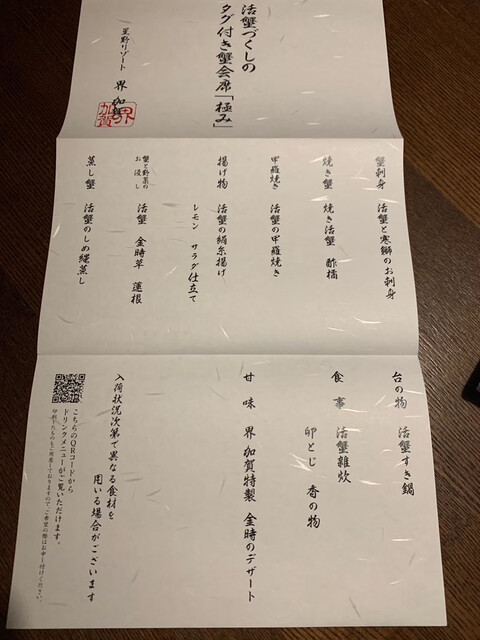 活蟹づくしの
タグ付き蟹会席「極み」
星野リゾート 界 加賀
界
加賀
蟹刺身 活蟹と寒鰤のお刺身
焼き蟹 焼き活蟹 酢橘
甲羅焼き 活蟹の甲羅焼き
揚げ物 活蟹の絹糸揚げ
レモン サラダ仕立て
蟹と野菜の
お浸し
活蟹 金時草 蓮根
蒸し蟹 活蟹のしめ縄蒸し
台の物 活蟹すき鍋
食事 活蟹雑炊
卵とじ 香の物
甘味 界 加賀特製 金時のデザート
入荷状況次第で異なる食材を
用いる場合がございます
こちらのQRコードから
ドリンクメニューがご覧いただけます。
印刷したものもご用意しておりますので、ご希望の際はお申し付けください。